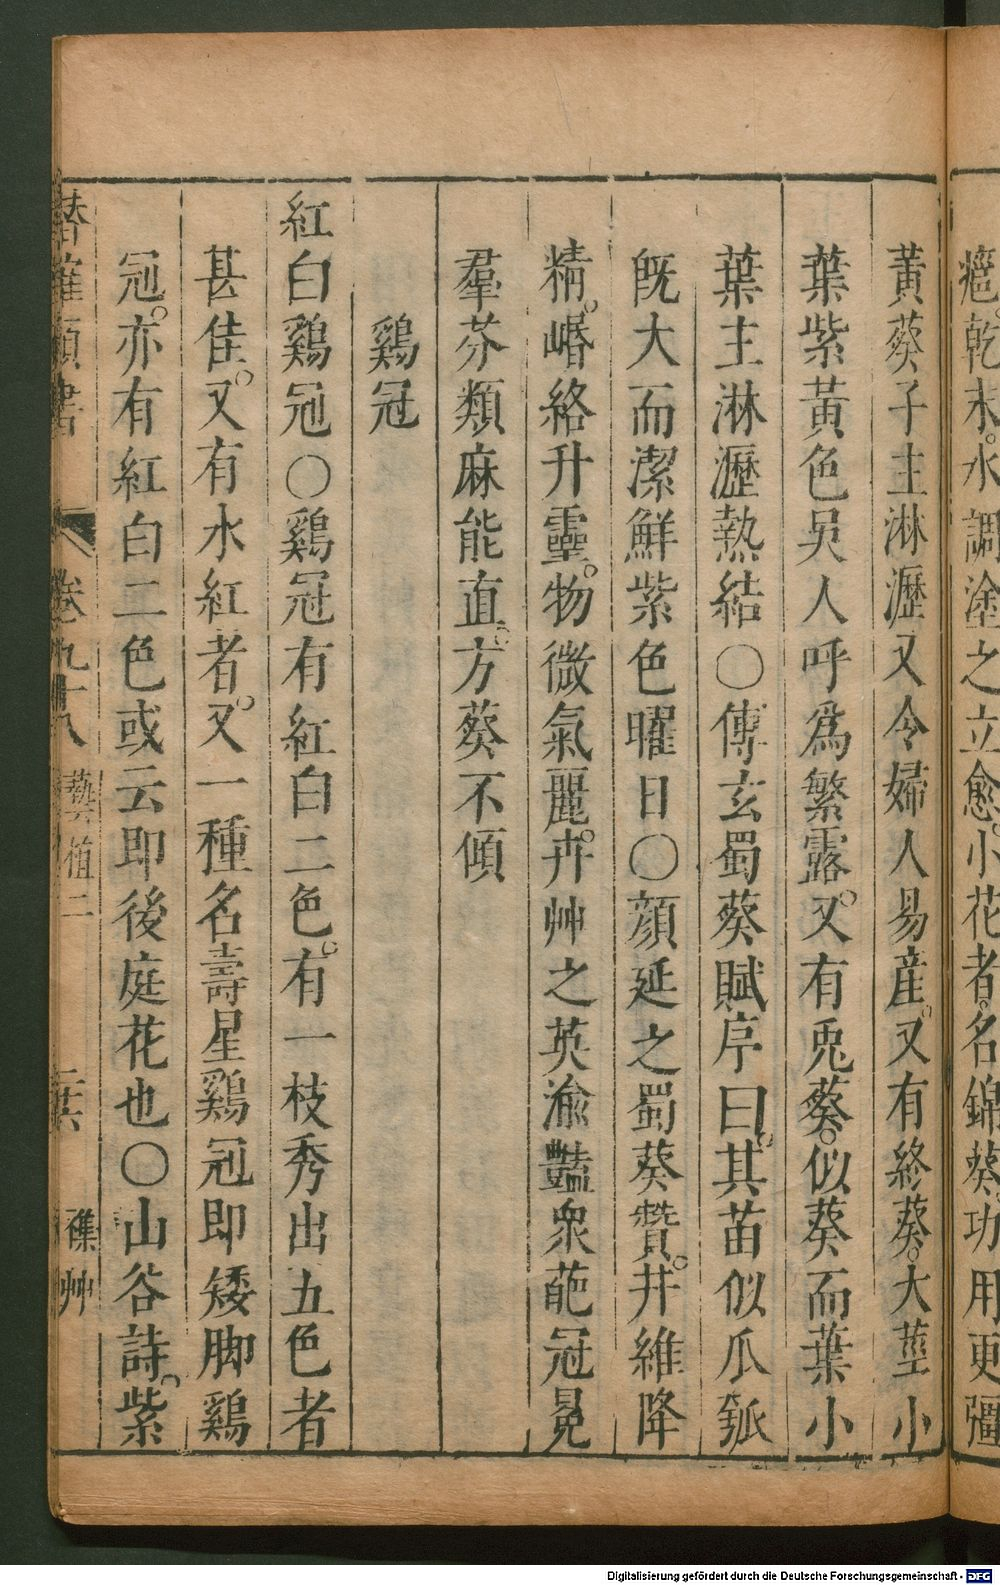 瘡乾末水調塗之立愈小花者名錦葵功用更彊
黃葵子主淋瀝又令婦人易産又有終葵大莖小
葉紫黃色吳人呼爲繁露又有兎葵似葵而葉小
葉主淋瀝熱結○傅玄蜀葵賦序曰其苗似瓜瓠
既大而潔鮮紫色曜日○顔延之蜀葵贊井維降
精嶓絡升靈物微氣麗卉艸之英渝豔衆葩冠冕
羣芬類麻能直方葵不傾
鷄冠
紅白鷄冠○鷄冠有紅白二色有一枝秀出五色者
甚佳又有水紅者又一種名壽星鷄冠即矮脚鷄
冠亦有紅白二色或云即後庭花也○山谷詩紫
潛確類書 卷九十八 藝植二 二十六 襍艸
Digitalisierung gefördert durch die Deutsche Forschungsgemeinschaft - DFG